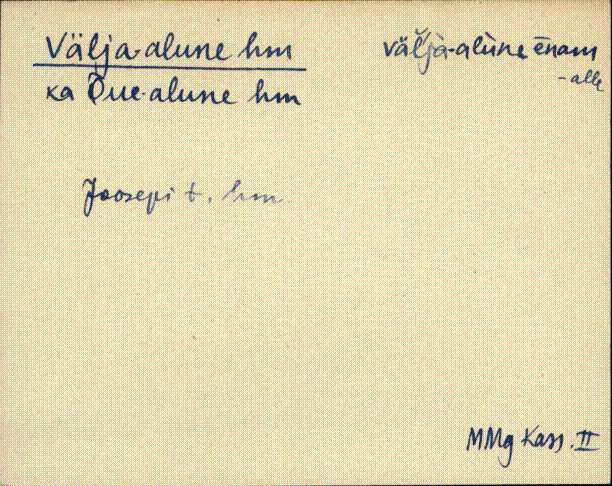 Välja-alune hm
väľjà-alune ēnam
-alle
ka Õue-alune hm
Joosepi t. hm
MMg Kass. II